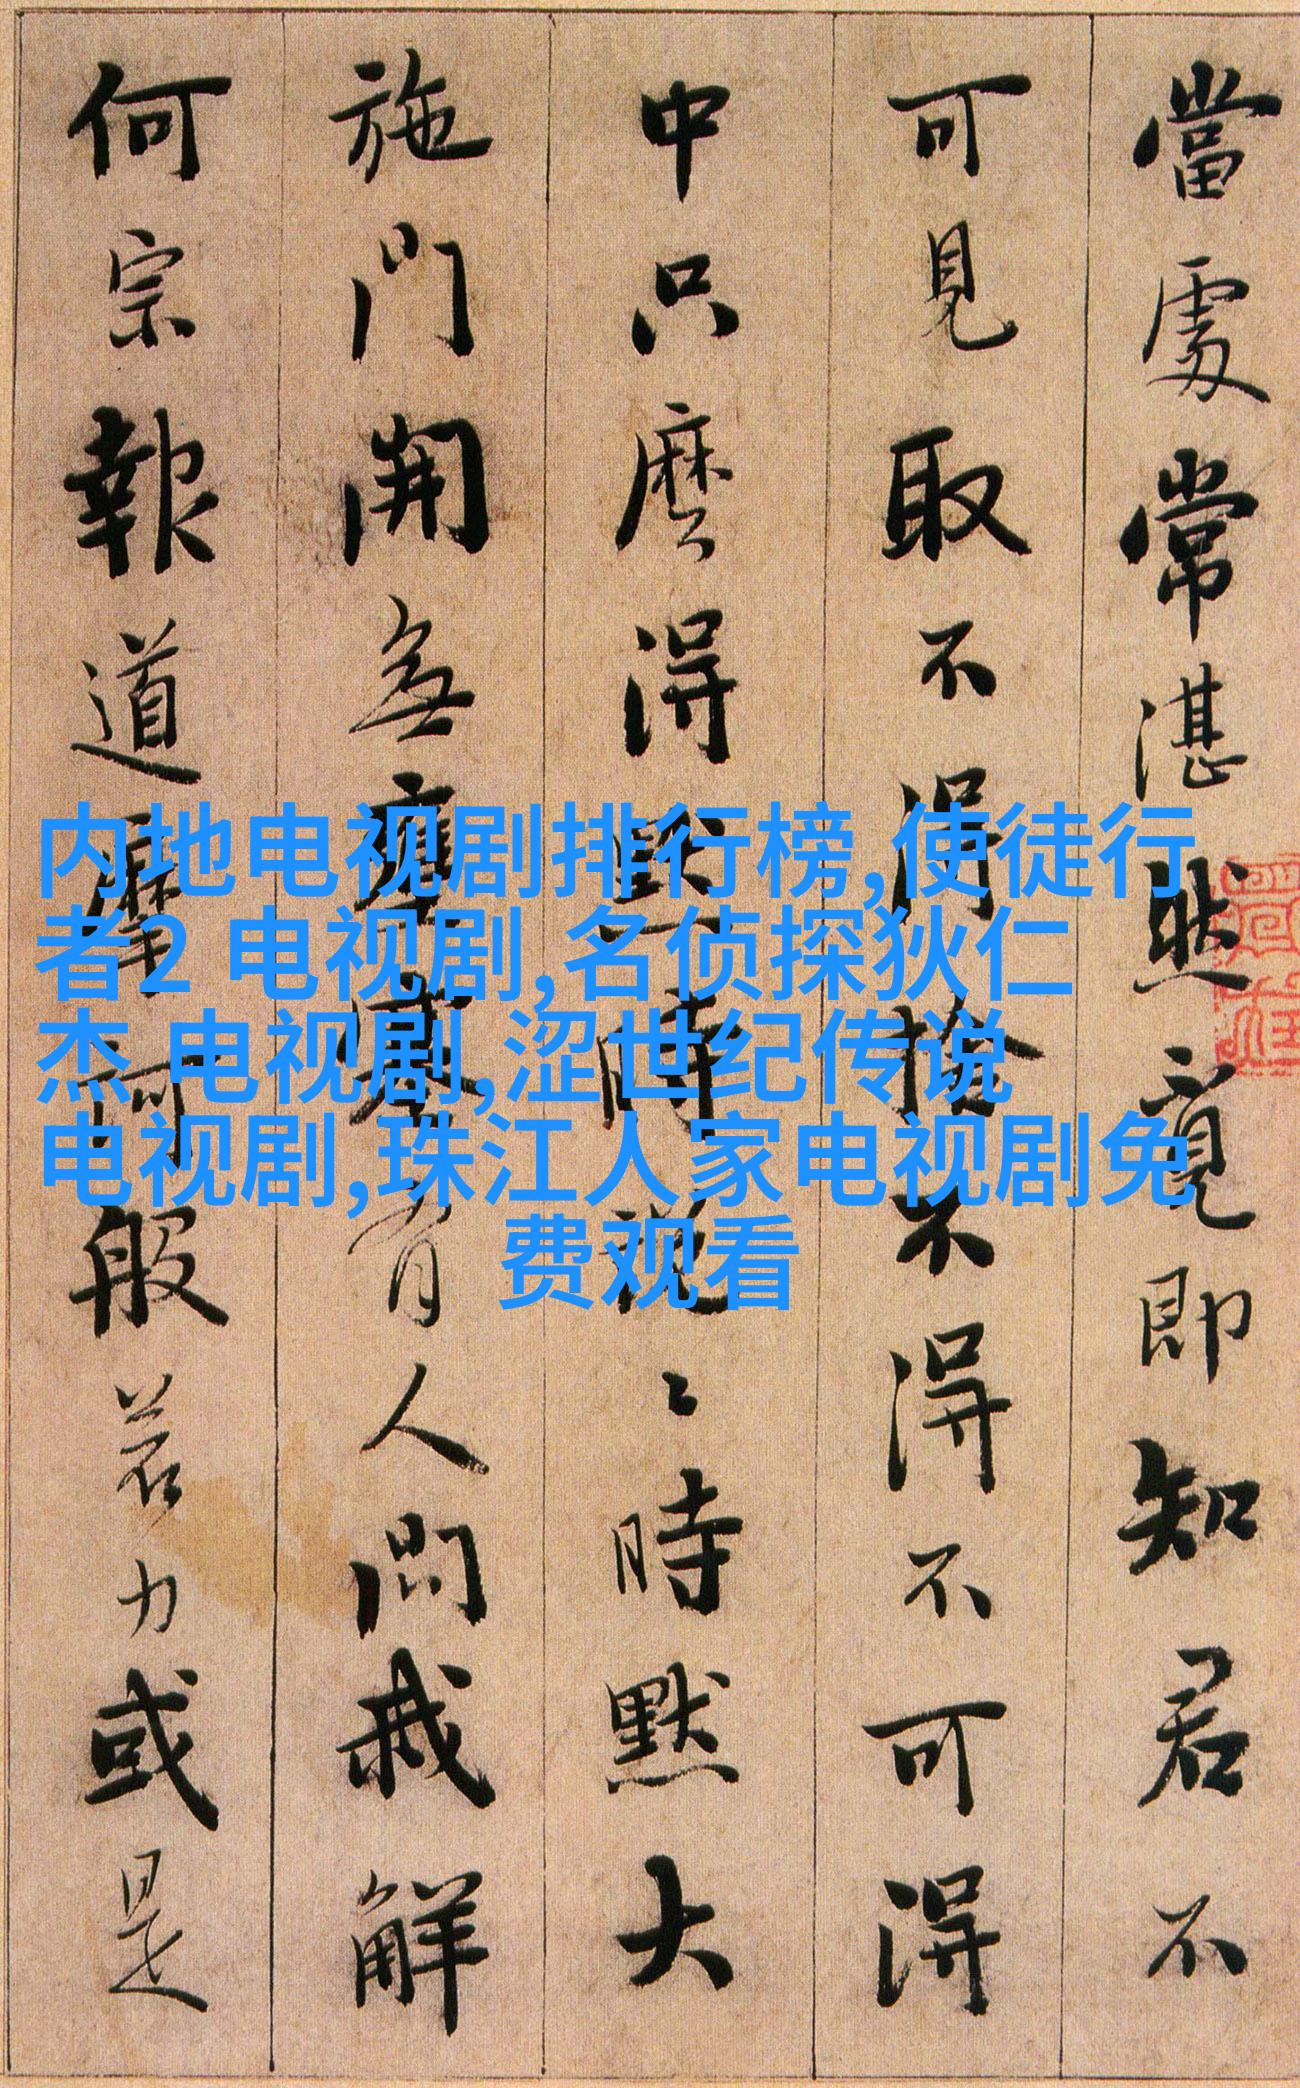 當處常湛然覓即知君不
可見取不得捨不得不可得
中只麼得默時說〻時默大
施門開無壅塞有人問我解
何宗報道摩訶般若力或是
内地电视剧排行榜,使徒行
者2 电视剧,名侦探狄仁
杰 电视剧,涩世纪传说
电视剧,珠江人家电视剧免
费观看